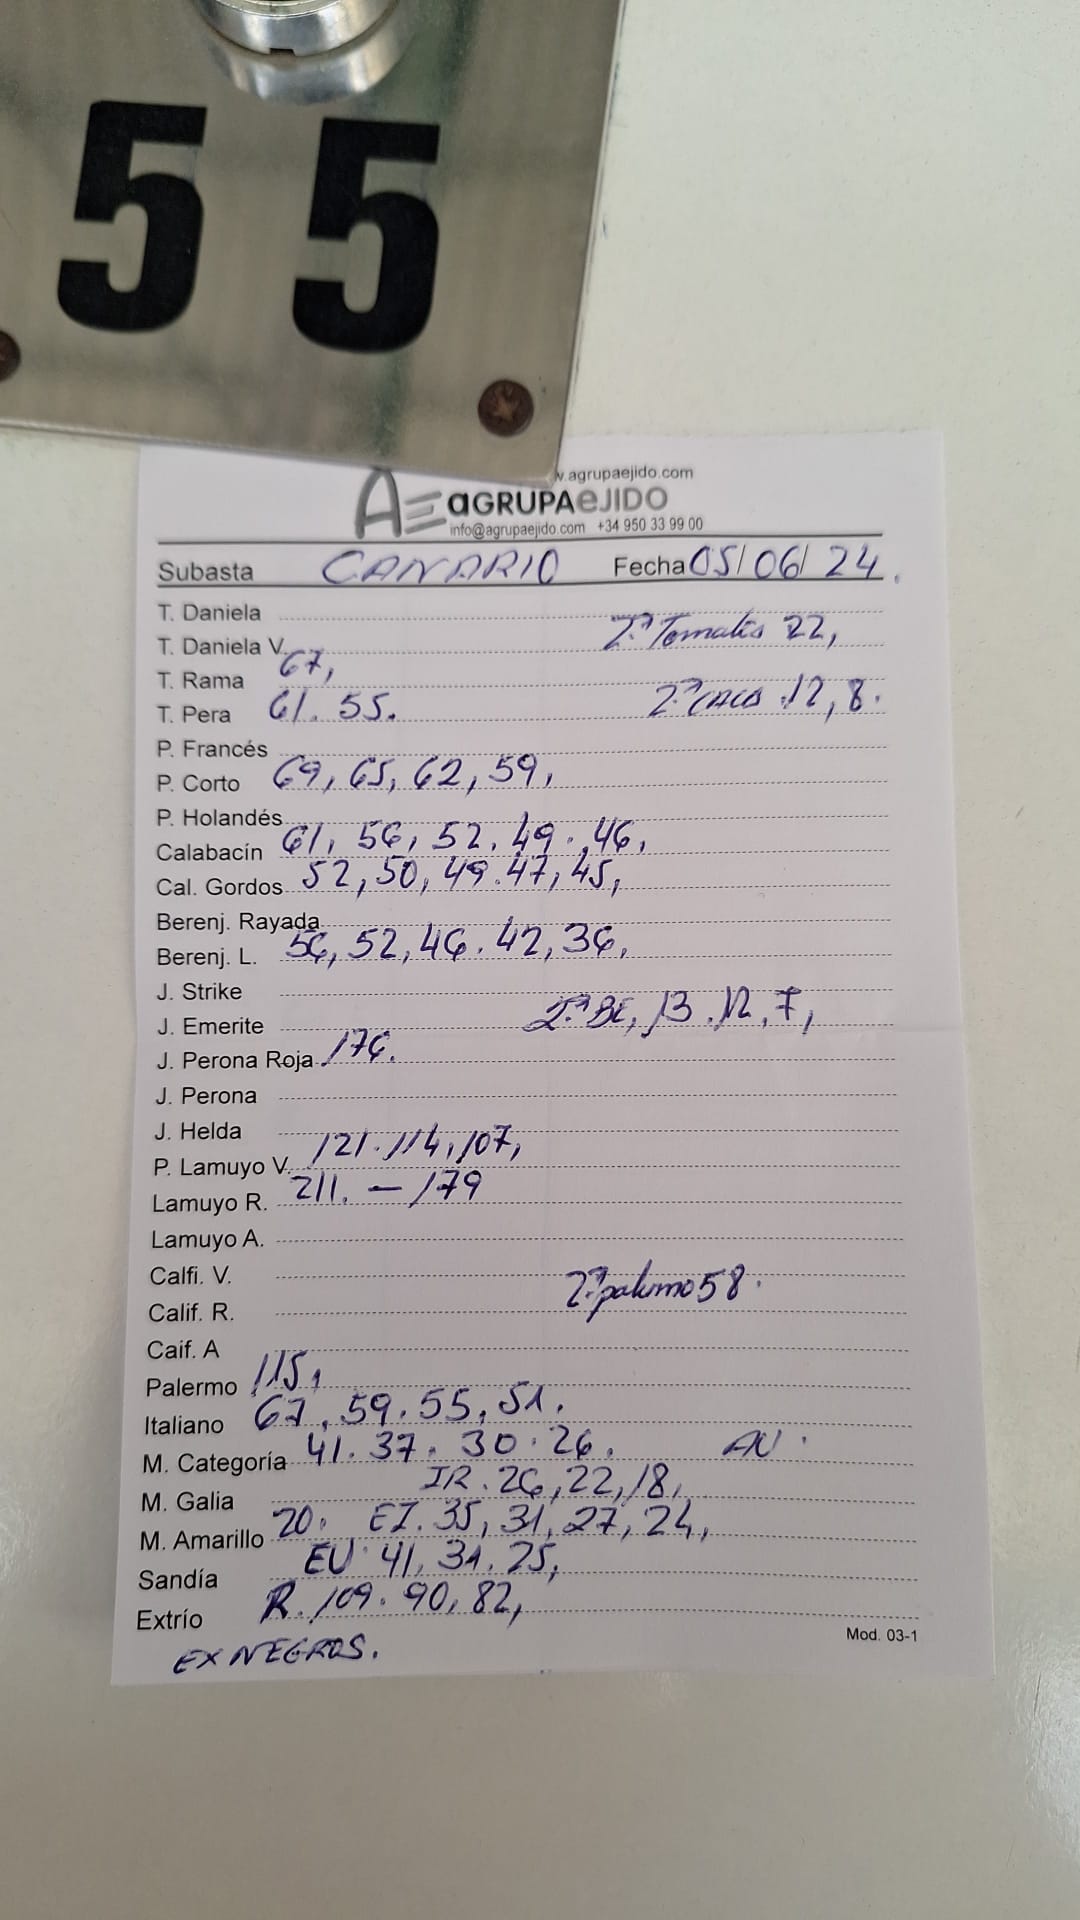 55
w.agrupaejido.com
AE aGRUPAeJIDO
info@agrupaejido.com +34 950 33 99 00
Subasta CANARIO Fecha 05/06/24.
T. Daniela
T. Daniela V. 2ª Tomates 22,
T. Rama 67,
T. Pera 61. 55. 2ª CACO 12, 8.
P. Francés
P. Corto 69, 65, 62, 59,
P. Holandés
Calabacín 61, 56, 52. 49. 46,
Cal. Gordos 52, 50, 49. 47, 45,
Berenj. Rayada
Berenj. L. 56, 52, 46. 42, 36,
J. Strike
J. Emerite 2ª BE, 13. 12, 7,
J. Perona Roja 176.
J. Perona
J. Helda
P. Lamuyo V. 121. 114, 107,
Lamuyo R. 211. — 179
Lamuyo A.
Calfi. V.
Calif. R. 2ª palermo 58.
Caif. A
Palermo 115,
Italiano 67, 59. 55, 51.
M. Categoría 41. 37. 30. 26. AN.
M. Galia IR. 26, 22, 18,
M. Amarillo 20. EZ. 35, 31, 27, 24,
Sandía EU. 41, 31. 25,
Extrío R. 109. 90, 82,
EX NEGROS.
Mod. 03-1